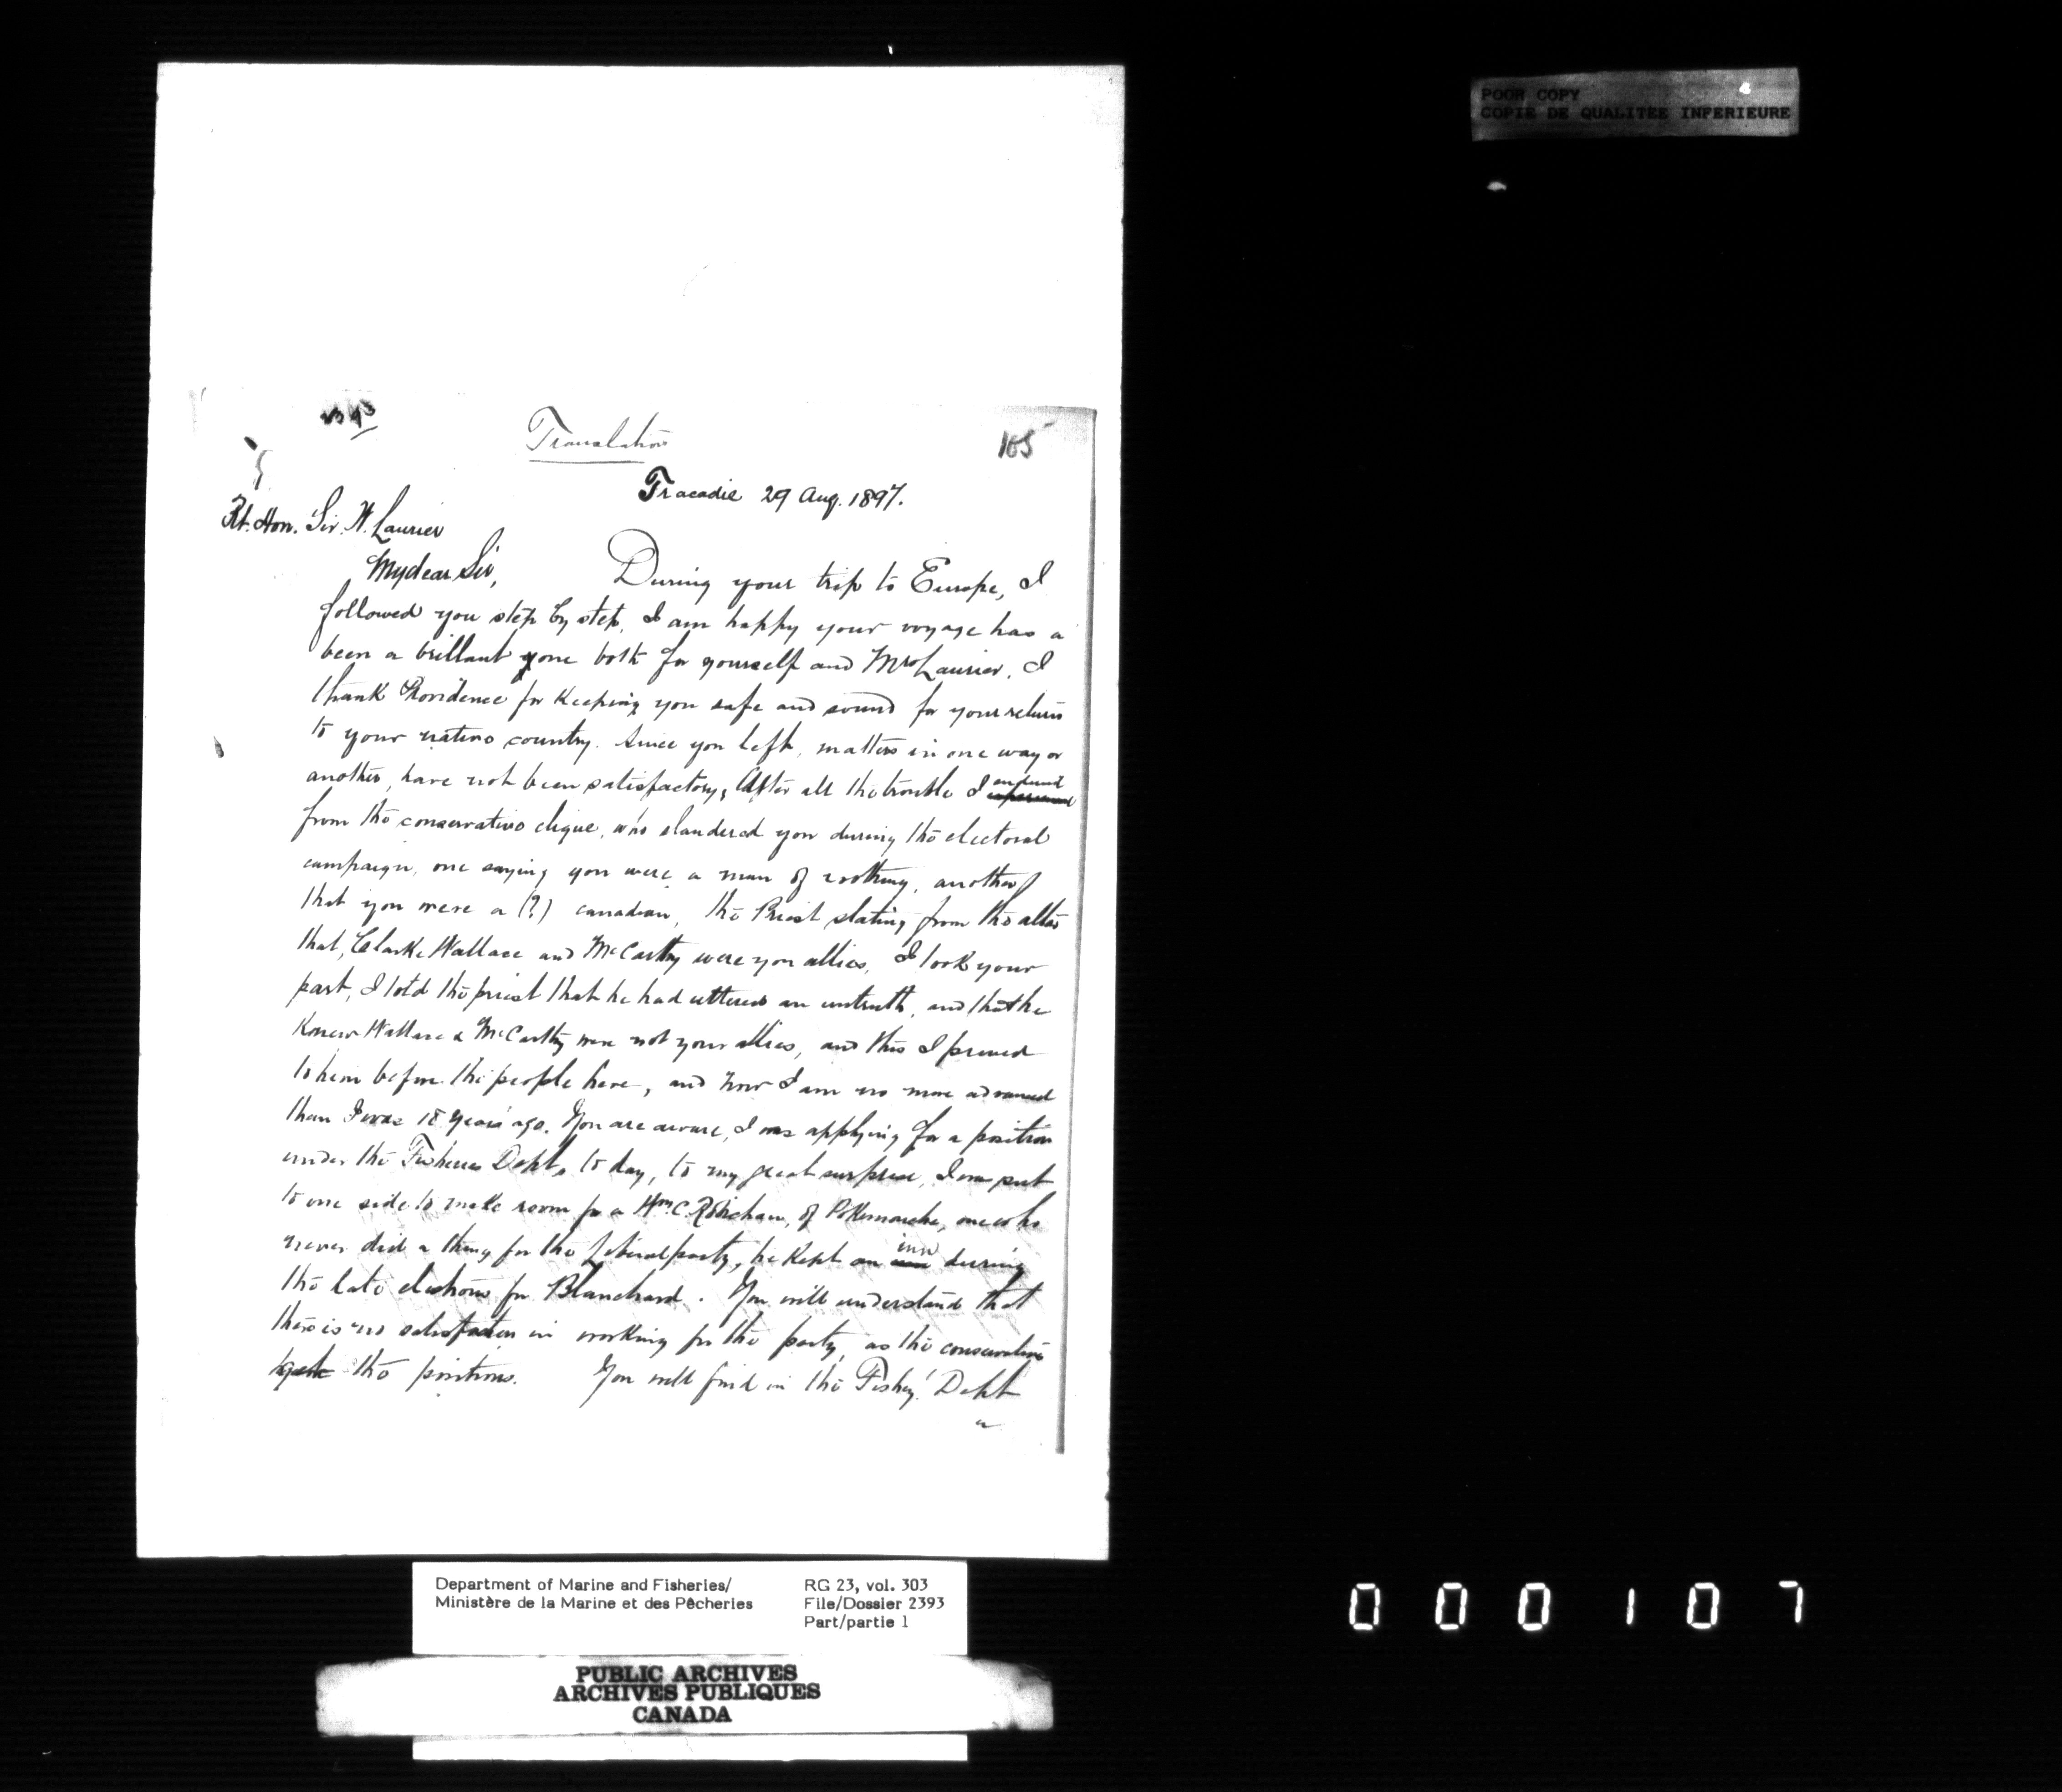 POOR COPY
COPIE DE QUALITEE INFERIEURE
2393
Translation
105
Tracadie 29 Aug. 1897.
Rt. Hon. Sir. W. Laurier
My dear Sir,
During your trip to Europe, I
followed you step by step, I am happy your voyage has a
been a brillant one both for yourself and Mrs Laurier. I
thank Providence for keeping you safe and sound for your return
to your native country. Since you left, matters in one way or
another, have not been satisfactory, After all the trouble I endured
from the conservative clique, who slandered you during the electoral
campaign, one saying you were a man of nothing, another
that you were a (?) canadian, the Priest stating from the altar
that, Clarke Wallace and McCarthy were your allies, I took your
part, I told the priest that he had uttered an untruth, and that he
Knew Wallace & McCarthy were not your allies, and this I proved
to him before the people here, and now I am no more advanced
than I was 18 years ago. You are aware, I was applying for a position
under the Fisheries Dept, to day, to my great surprise, I was put
to one side to make room for a Wm. C. Robichaux, of Pokemouche, one who
never did a thing for the Liberal party, he kept an inn during
the late elections for Blanchard. You will understand that
there is no satisfaction in working for the party, as the conservative
get the positions. You will find in the Fishery Dept
Department of Marine and Fisheries/
Ministère de la Marine et des Pêcheries
RG 23, vol. 303
File/Dossier 2393
Part/partie 1
PUBLIC ARCHIVES
ARCHIVES PUBLIQUES
CANADA
000107